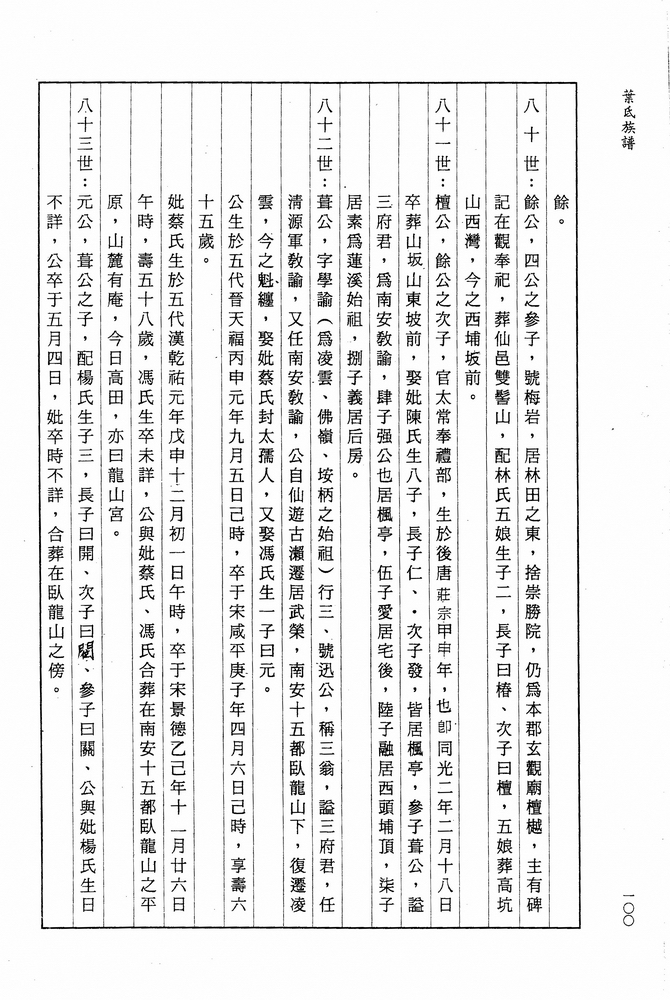 葉氏族譜
餘。
八十世：餘公，四公之參子，號梅岩，居林田之東，捨崇勝院，仍爲本郡玄觀廟檀樾，主有碑
記在觀奉祀，葬仙邑雙髻山，配林氏五娘生子二，長子曰椿、次子曰檀，五娘葬高坑
山西灣，今之西埔坡前。
八十一世：檀公，餘公之次子，官太常奉禮部，生於後唐莊宗甲申年，也卽同光二年二月十八日
卒葬山坂山東坡前，娶妣陳氏生八子，長子仁、·次子發，皆居楓亭，參子葺公，謚
三府君，爲南安敎諭，肆子强公也居楓亭，伍子愛居宅後，陸子融居西頭埔頂，柒子
居素爲蓮溪始祖，捌子義居后房。
八十二世：葺公，字學諭（爲凌雲、佛嶺、垵柄之始祖）行三、號迅公，稱三翁，謚三府君，任
清源軍敎諭，又任南安敎諭，公自仙遊古瀨遷居武榮，南安十五都臥龍山下，復遷凌
雲，今之魁纏，娶妣蔡氏封太孺人，又娶馮氏生一子曰元。
公生於五代晉天福丙申元年九月五日己時，卒于宋咸平庚子年四月六日己時，享壽六
十五歲。
妣蔡氏生於五代漢乾祐元年戊申十二月初一日午時，卒于宋景德乙己年十一月廿六日
午時，壽五十八歲，馮氏生卒未詳，公與妣蔡氏、馮氏合葬在南安十五都臥龍山之平
原，山麓有庵，今日高田，亦曰龍山宮。
八十三世：元公，葺公之子，配楊氏生子三，長子曰開、次子曰閎、參子曰關、公與妣楊氏生日
不詳，公卒于五月四日，妣卒時不詳，合葬在臥龍山之傍。
一〇〇